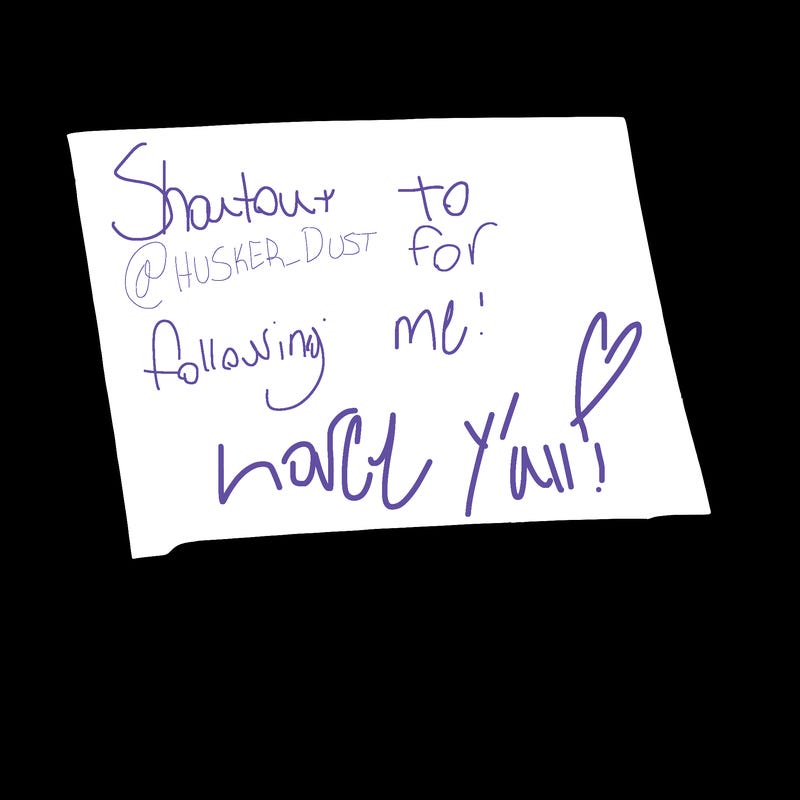 Shoutout to
@HUSKER_DUST for
following me!
Love y'all!